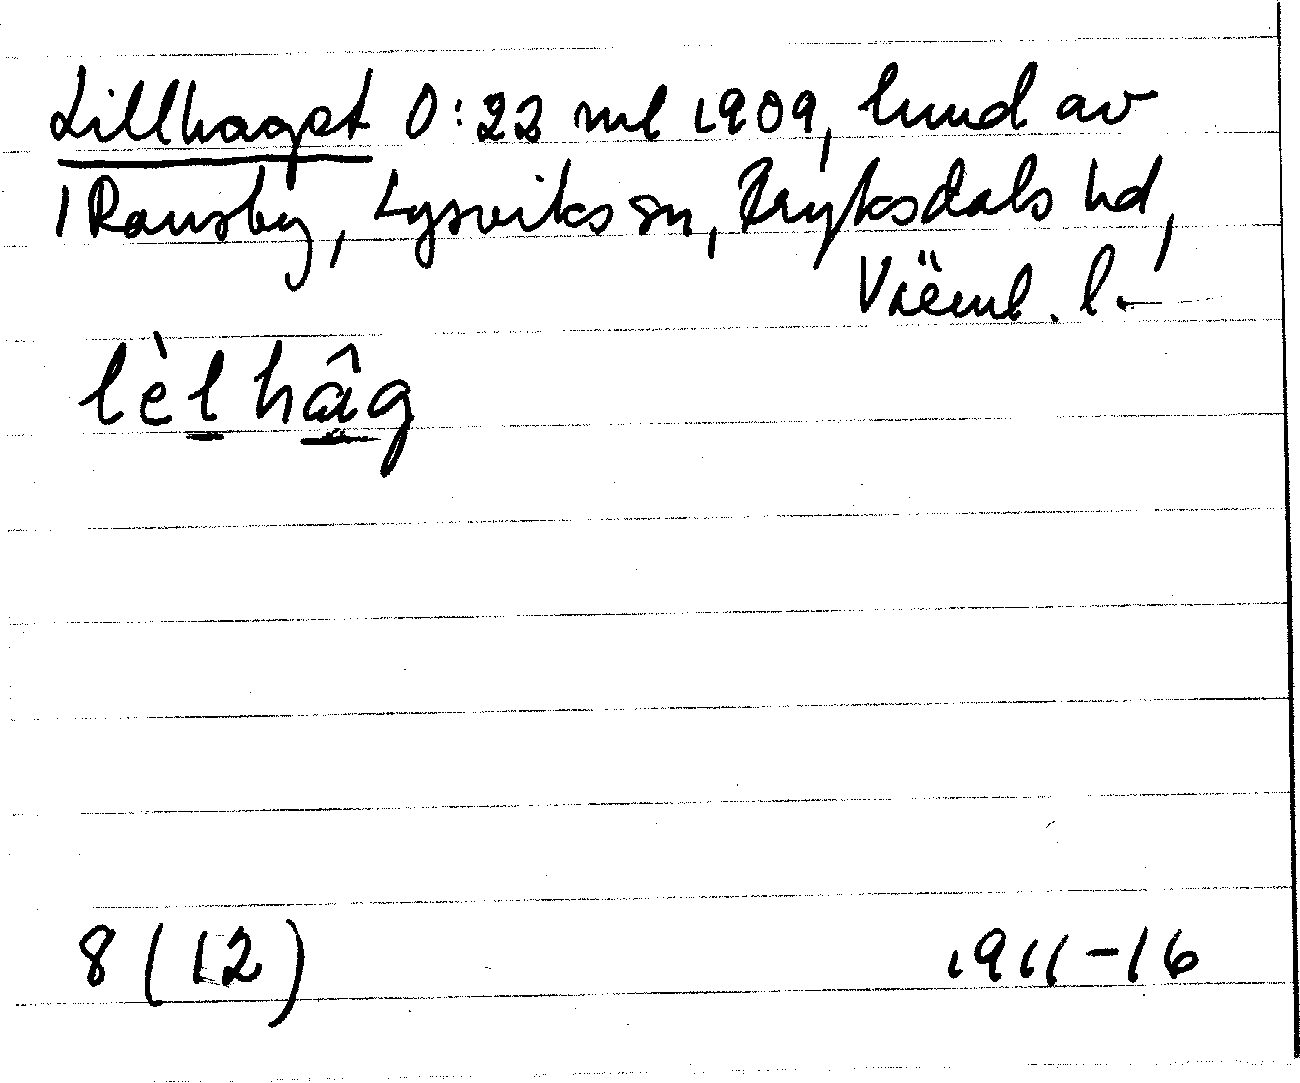 Lillhaget 0:22 ml 1909, lund av
1 Ransby, Lysviks sn, Fryksdals hd,
Värml. l.
lèlhâg
8 (12)
1911-16